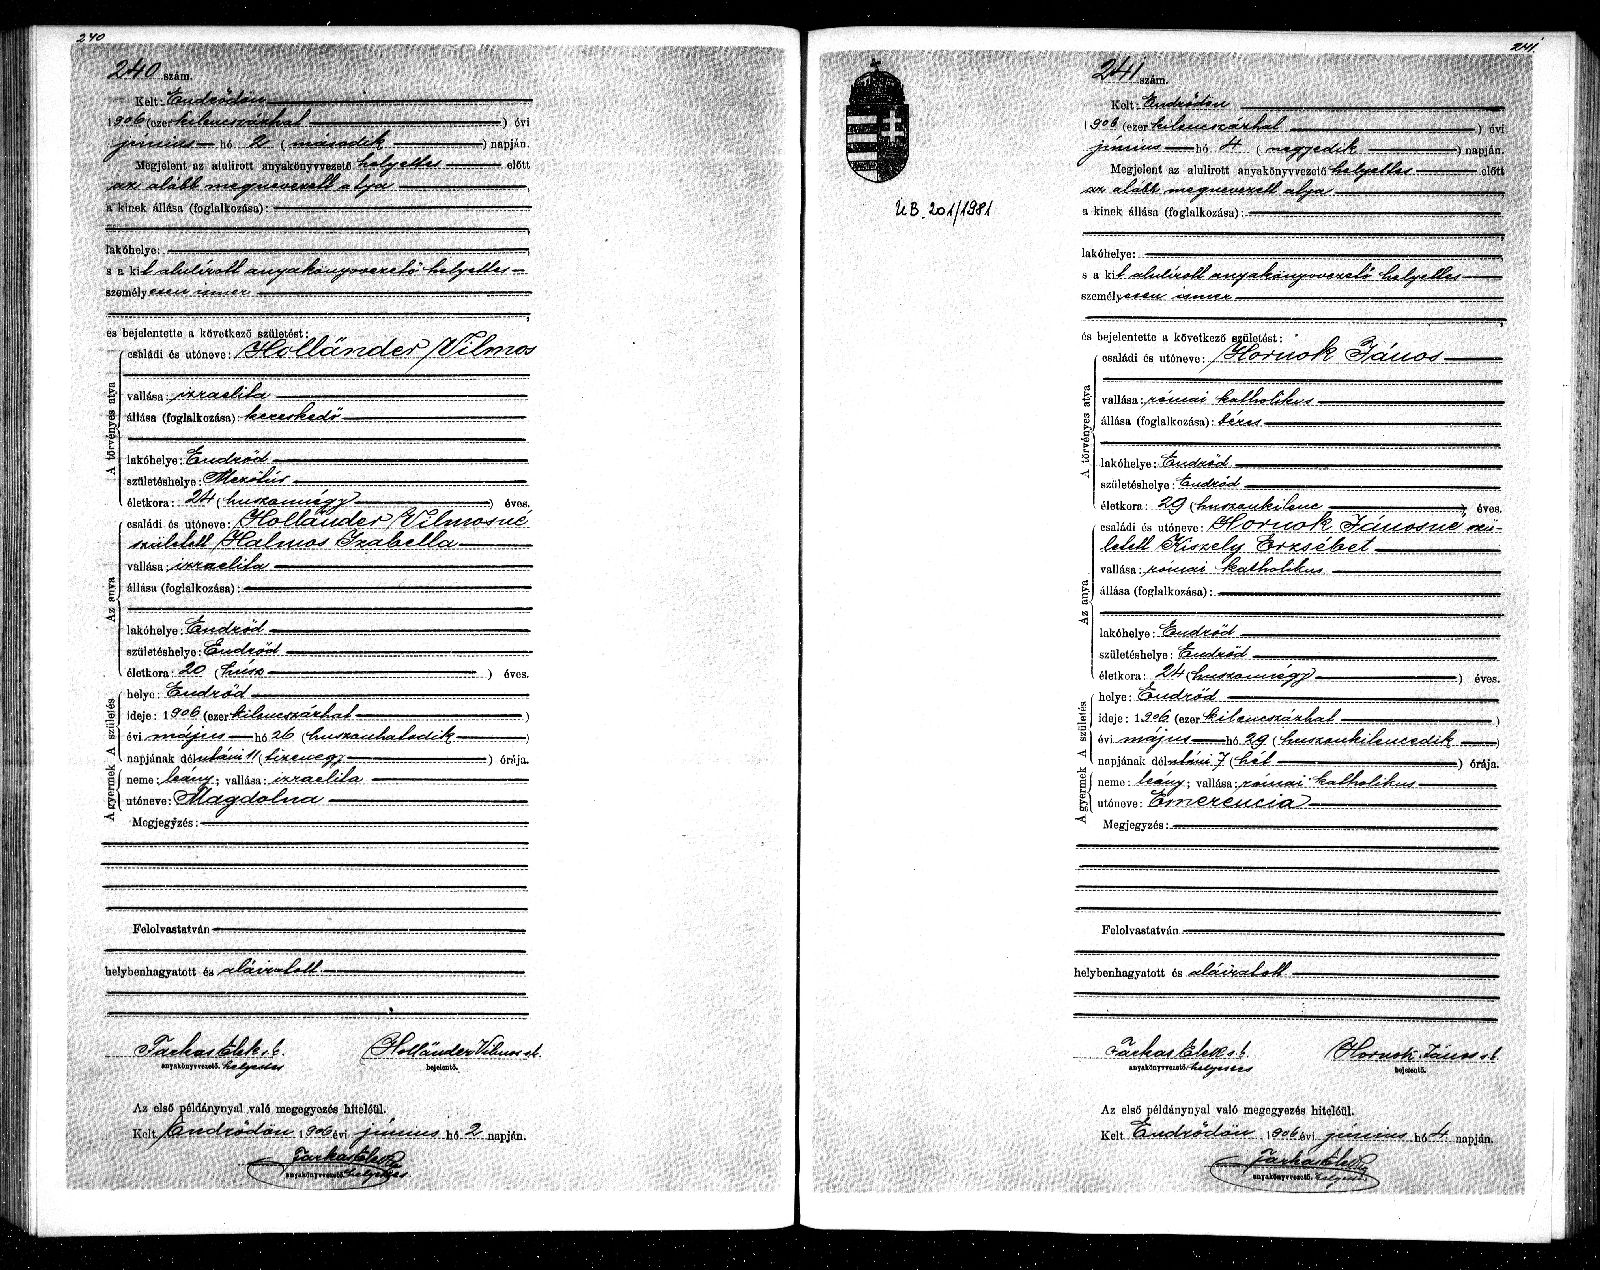 240
240 szám.
Kelt: Endrődön
1906 (ezer kilenczszázhat) évi
június hó 2 (második) napján.
Megjelent az alulirott anyakönyvvezető helyettes előtt
az alább megnevezett atya
a kinek állása (foglalkozása):
lakóhelye:
s a kit alulírott anyakönyvvezető helyettes
személyesen ismer
és bejelentette a következő születést:
A törvényes atya
családi és utóneve: Holländer Vilmos
vallása: izraelita
állása (foglalkozása): kereskedő
lakóhelye: Endrőd
születéshelye: Mezőtúr
életkora: 24 (huszonnégy) éves.
Az anya
családi és utóneve: Holländer Vilmosné
született Halmos Izabella
vallása: izraelita
állása (foglalkozása):
lakóhelye: Endrőd
születéshelye: Endrőd
életkora: 20 (húsz) éves.
A születés
helye: Endrőd
ideje: 1906 (ezer kilenczszázhat)
évi május hó 26 (huszonhatodik)
napjának délutáni 11 (tizenegy) órája.
A gyermek
neme: leány; vallása: izraelita
utóneve: Magdolna
Megjegyzés:
Felolvastatván
helybenhagyatott és aláiratott
Farkas Elek s. k. Holländer Vilmos s. k.
anyakönyvvezető. helyettes bejelentő.
Az első példánynyal való megegyezés hiteléül.
Kelt Endrődön 1906 évi június hó 2 napján.
Farkas Elek
anyakönyvvezető. helyettes
241
UB. 201/1981
241 szám.
Kelt: Endrődön
1906 (ezer kilenczszázhat) évi
június hó 4 (negyedik) napján.
Megjelent az alulirott anyakönyvvezető helyettes előtt
az alább megnevezett atya
a kinek állása (foglalkozása):
lakóhelye:
s a kit alulírott anyakönyvvezető helyettes
személyesen ismer
és bejelentette a következő születést:
A törvényes atya
családi és utóneve: Hornok János
vallása: római katholikus
állása (foglalkozása): béres
lakóhelye: Endrőd
születéshelye: Endrőd
életkora: 29 (huszonkilenc) éves.
Az anya
családi és utóneve: Hornok Jánosné szü-
letett Kiszely Erzsébet
vallása: római katholikus
állása (foglalkozása):
lakóhelye: Endrőd
születéshelye: Endrőd
életkora: 24 (huszonnégy) éves.
A születés
helye: Endrőd
ideje: 1906 (ezer kilenczszázhat)
évi május hó 29 (huszonkilencedik)
napjának délutáni 7 (hét) órája.
A gyermek
neme: leány; vallása: római katholikus
utóneve: Emerencia
Megjegyzés:
Felolvastatván
helybenhagyatott és aláiratott
Farkas Elek s. k. Hornok János s. k.
anyakönyvvezető. helyettes bejelentő.
Az első példánynyal való megegyezés hiteléül.
Kelt Endrődön 1906 évi június hó 4 napján.
Farkas Elek
anyakönyvvezető. helyettes